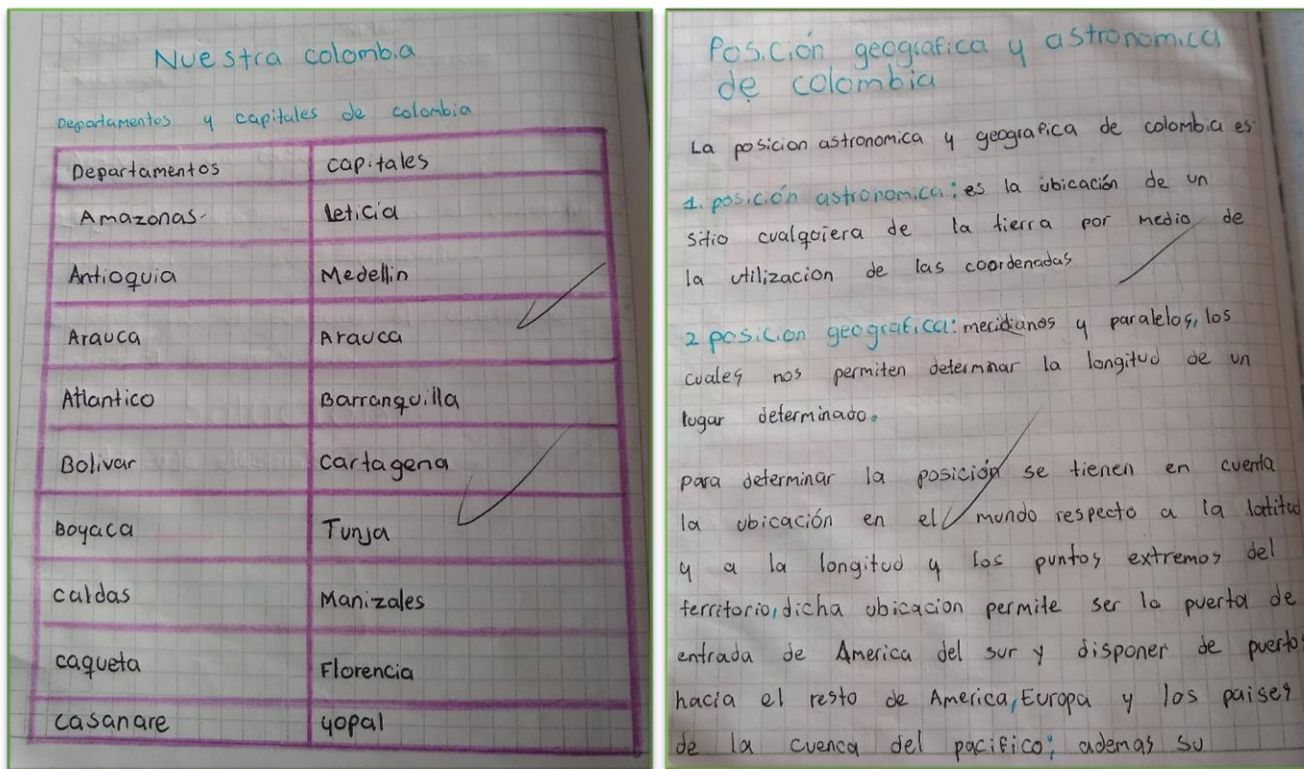 Nuestra colombia
Departamentos y capitales de colombia
Departamentos capitales
Amazonas leticia
Antioquia Medellin
Arauca Arauca
Atlantico Barranquilla
Bolivar cartagena
Boyaca Tunja
caldas Manizales
caqueta Florencia
casanare yopal
Posición geografica y astronomica
de colombia
La posicion astronomica y geografica de colombia es:
1. posición astronomica: es la ubicación de un
sitio cualquiera de la tierra por medio de
la utilizacion de las coordenadas
2 posicion geografica: meridianos y paralelos, los
cuales nos permiten determinar la longitud de un
lugar determinado.
para determinar la posición se tienen en cuenta
la ubicación en el mundo respecto a la latitud
y a la longitud y los puntos extremos del
territorio, dicha ubicacion permite ser la puerta de
entrada de America del sur y disponer de puertos
hacia el resto de America, Europa y los paises
de la cuenca del pacifico; ademas su